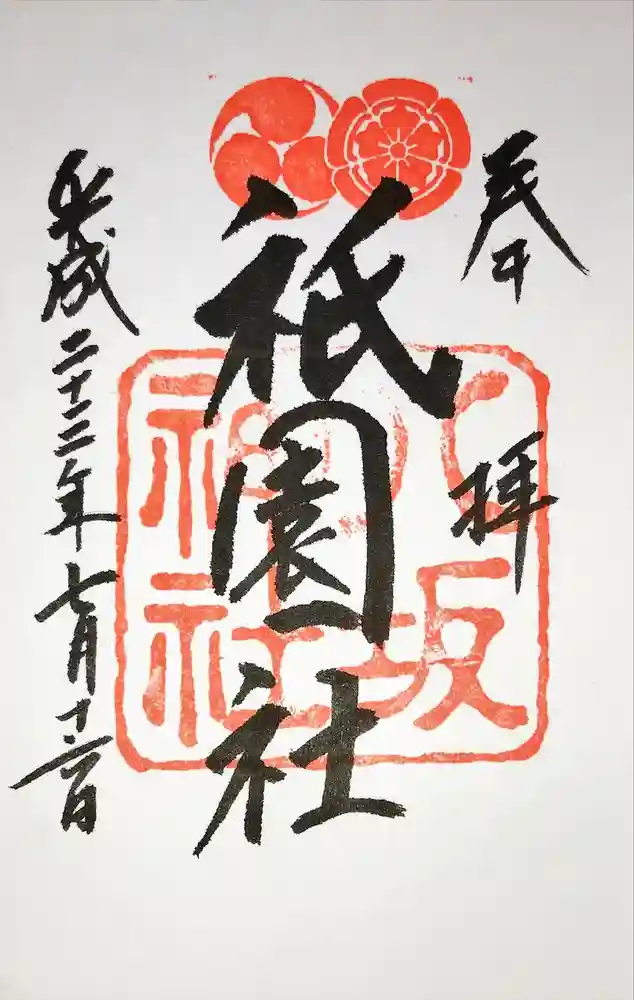 奉拝
祇園社
八坂神社
平成二十二年七月十六日